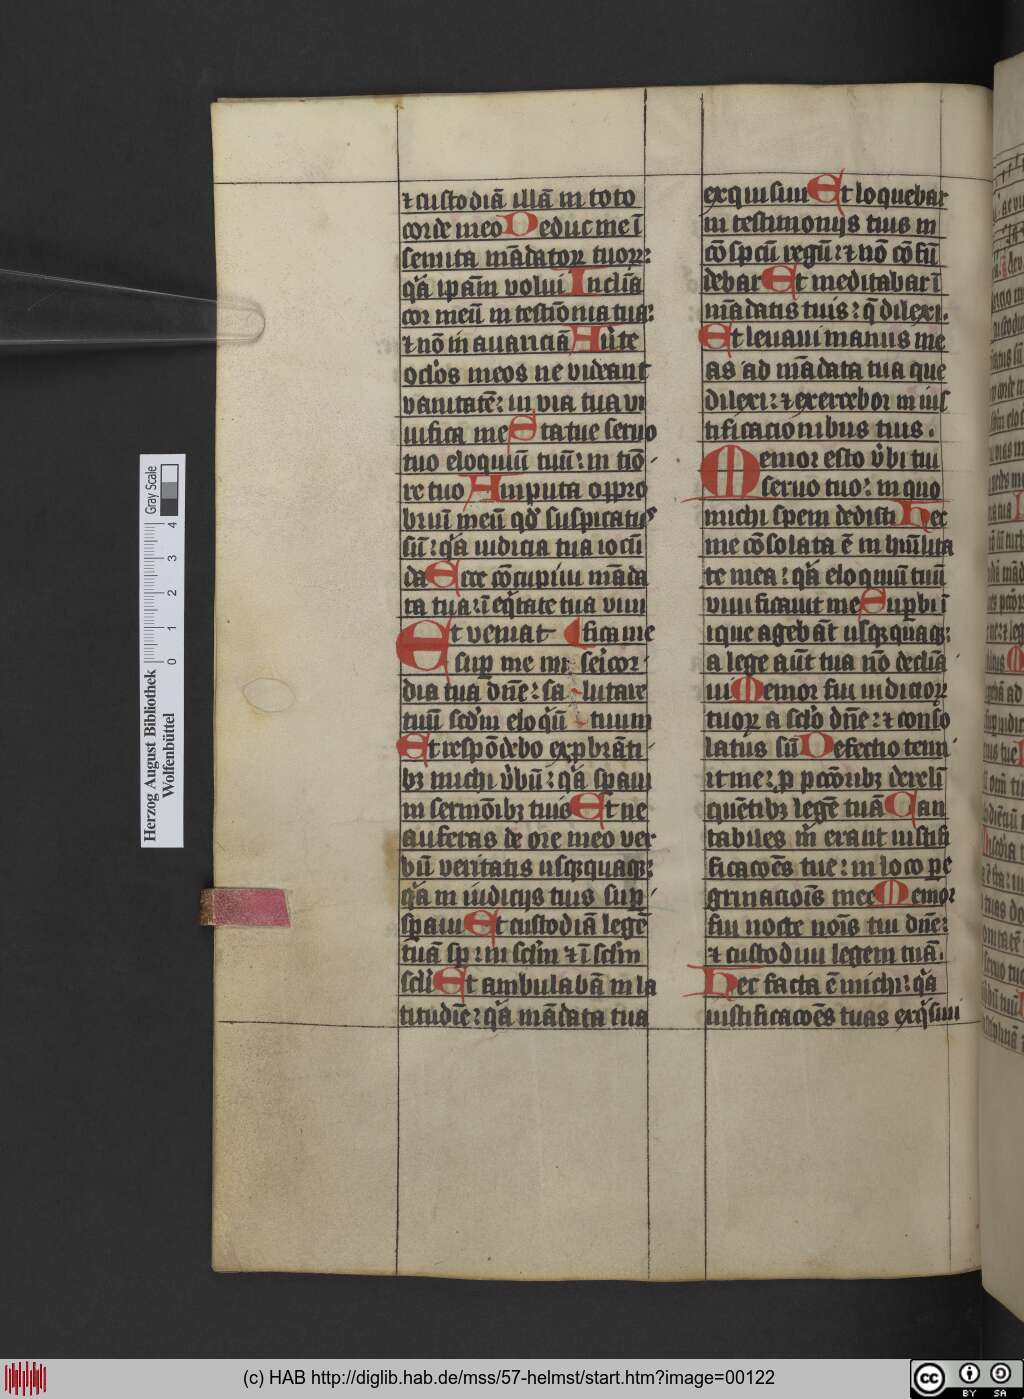 ⁊ custodiā illā in toto
corde meo Deduc me ī
semita mādatoꝝ tuoꝝ:
q̄a ip̄am volui Inclīa
cor meū in testiōnia tua:
⁊ nō in auariciā Au̓te
oc̄los meos ne videant
vanitatē: in via tua vi
uifica me Statue seruo
tuo eloquiū tuū: in tiō
re tuo Amputa oppro
briū meū qd̓ suspicatꝰ
sū: q̄a iudicia tua iocū
da Ecce cōcupiui māda
ta tua: ī eq̄tate tua viui
fica me
Et veniat
sup̱ me mi sēicor
dia tua dn̄e: sa lutare
tuū scd̓m eloq̄ū tuum
Et respōdebo exp̱brāti
bꝫ michi v̓bū: q̄a sp̱aui
in sermōibꝫ tuis Et ne
auferas de ore meo ver
bū veritatis usqꝫquaqꝫ:
q̄a in iudicijs tuis sup̱
sp̱aui Et custodiā legē
tuā sp̱: in sc̄lm ⁊ ī sc̄lm
sc̄li Et ambulabā in la
titudīe: q̄a mādata tua
exquisiui Et loquebar
in testimonijs tuis in
cōspc̄u regū: ⁊ nō cōfū
debar Et meditabar ī
mādatis tuis: q̄ dilexi.
Et leuaui manus me
as ad mādata tua que
dilexi: ⁊ exercebor in ius
tificacionibus tuis.
Memor esto v̓bi tui
seruo tuo: in quo
michi spem dedisti Hec
me cōsolata ē in hūīlita
te mea: q̄a eloquiū tuū
viuificauit me Sup̱bi ī
ique agebāt usqꝫquaqꝫ:
a lege aūt tua nō declīa
ui Memor fui iudicioꝝ
tuoꝝ a sc̄lo dn̄e: ⁊ conso
latus sū Defectio tenu
it me: p̱ pcc̄oribꝫ derelī
quētibꝫ legē tuā Can
tabiles m̄ erant iustifi
ficacōes tue: in loco p̱e
grinacioīs mee Memor
fui nocte noīs tui dn̄e:
⁊ custodiui legem tuā.
Hec facta ē michi: q̄a
iustificacōes tuas exq̄siui
Herzog August Bibliothek
Wolfenbüttel
0 1 2 3 4
Gray Scale
(c) HAB http://diglib.hab.de/mss/57-helmst/start.htm?image=00122
cc BY SA